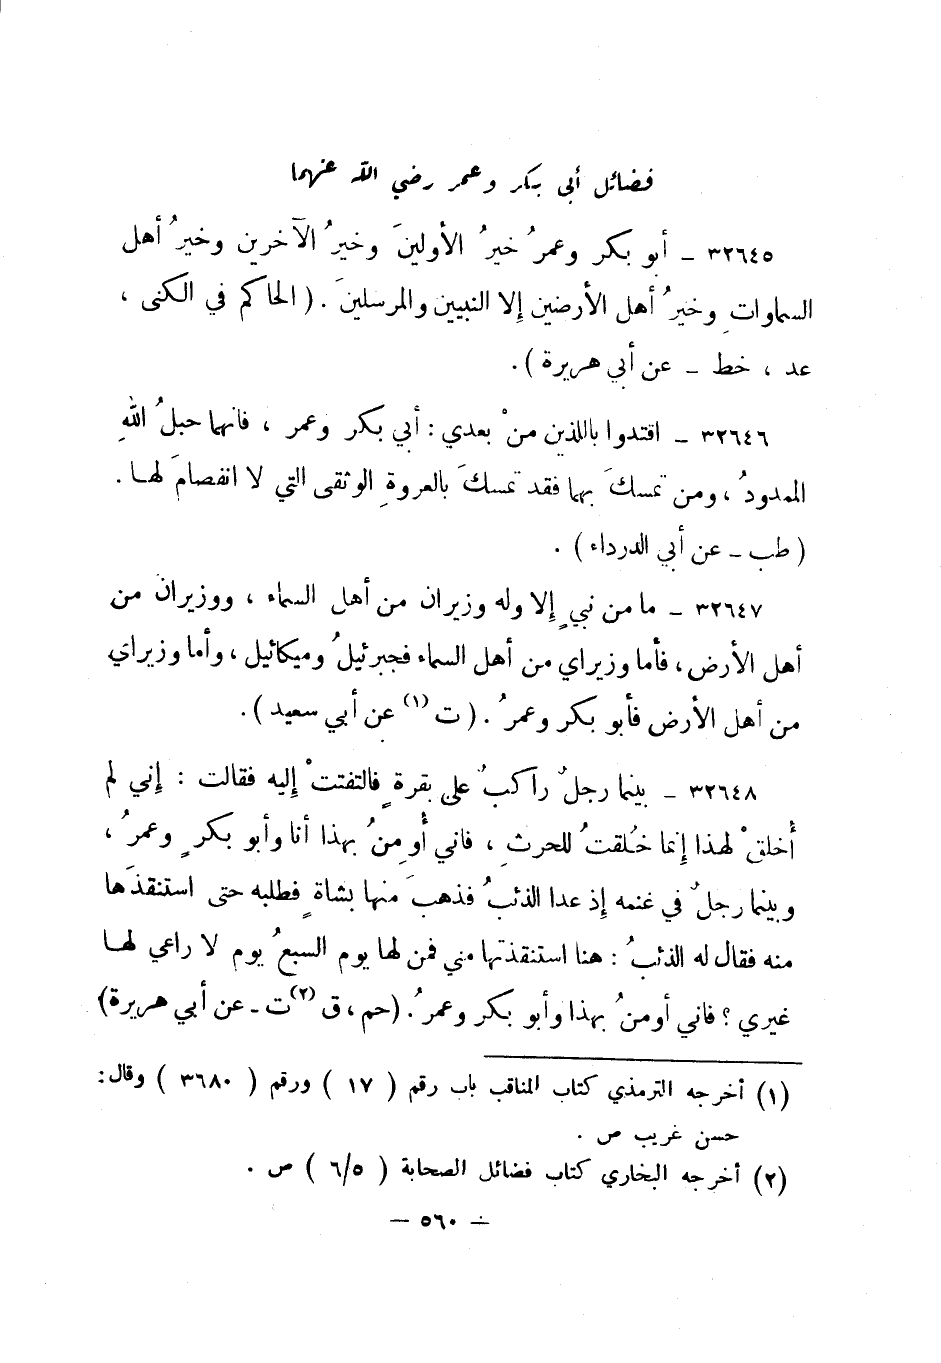 فضائل أبي بكر وعمر رضي الله عنهما
٣٢٦٤٥ ـ أبو بكر وعمرُ خيرُ الأولينَ وخيرُ الآخرين وخيرُ أهل
السماواتِ وخيرُ أهل الأرضين إلا النبيين والمرسلينَ . ( الحاكم في الكنى ،
عد ، خط ـ عن أبي هريرة ) .
٣٢٦٤٦ ـ اقتدوا باللذين منْ بعدي : أبي بكر وعمر ، فانهما حبلُ اللهِ
الممدودُ ، ومن تمسكَ بهما فقد تمسكَ بالعروةِ الوثقى التي لا انفصامَ لها .
( طب ـ عن أبي الدرداء ) .
٣٢٦٤٧ ـ ما من نبيٍ إلا وله وزيران من أهل السماء ، ووزيران من
أهل الأرض ، فأما وزيراي من أهل السماء فجبرئيلُ وميكائيل ، وأما وزيراي
من أهل الأرض فأبو بكر وعمرُ . ( ت (١) عن أبي سعيد ) .
٣٢٦٤٨ ـ بينما رجلٌ راكبٌ على بقرةٍ فالتفتتْ إليه فقالت : إني لم
أُخلقْ لهذا إنما خُلقتُ للحرثِ ، فاني أُومنُ بهذا أنا وأبو بكرٍ وعمرُ ،
وبينما رجلٌ في غنمه إذ عدا الذئبُ فذهبَ منها بشاةٍ فطلبه حتى استنقذَها
منه فقال له الذئبُ : هنا استنقذتها مني فمن لها يوم السبعُ يوم لا راعي لها
غيري ؟ فاني أومنُ بهذا وأبو بكر وعمرُ . (حم ، ق (٢) ت ـ عن أبي هريرة)
(١) أخرجه الترمذي كتاب المناقب باب رقم ( ١٧ ) ورقم ( ٣٦٨٠ ) وقال :
حسن غريب ص .
(٢) أخرجه البخاري كتاب فضائل الصحابة ( ٦/٥ ) ص .
— ٥٦٠ —